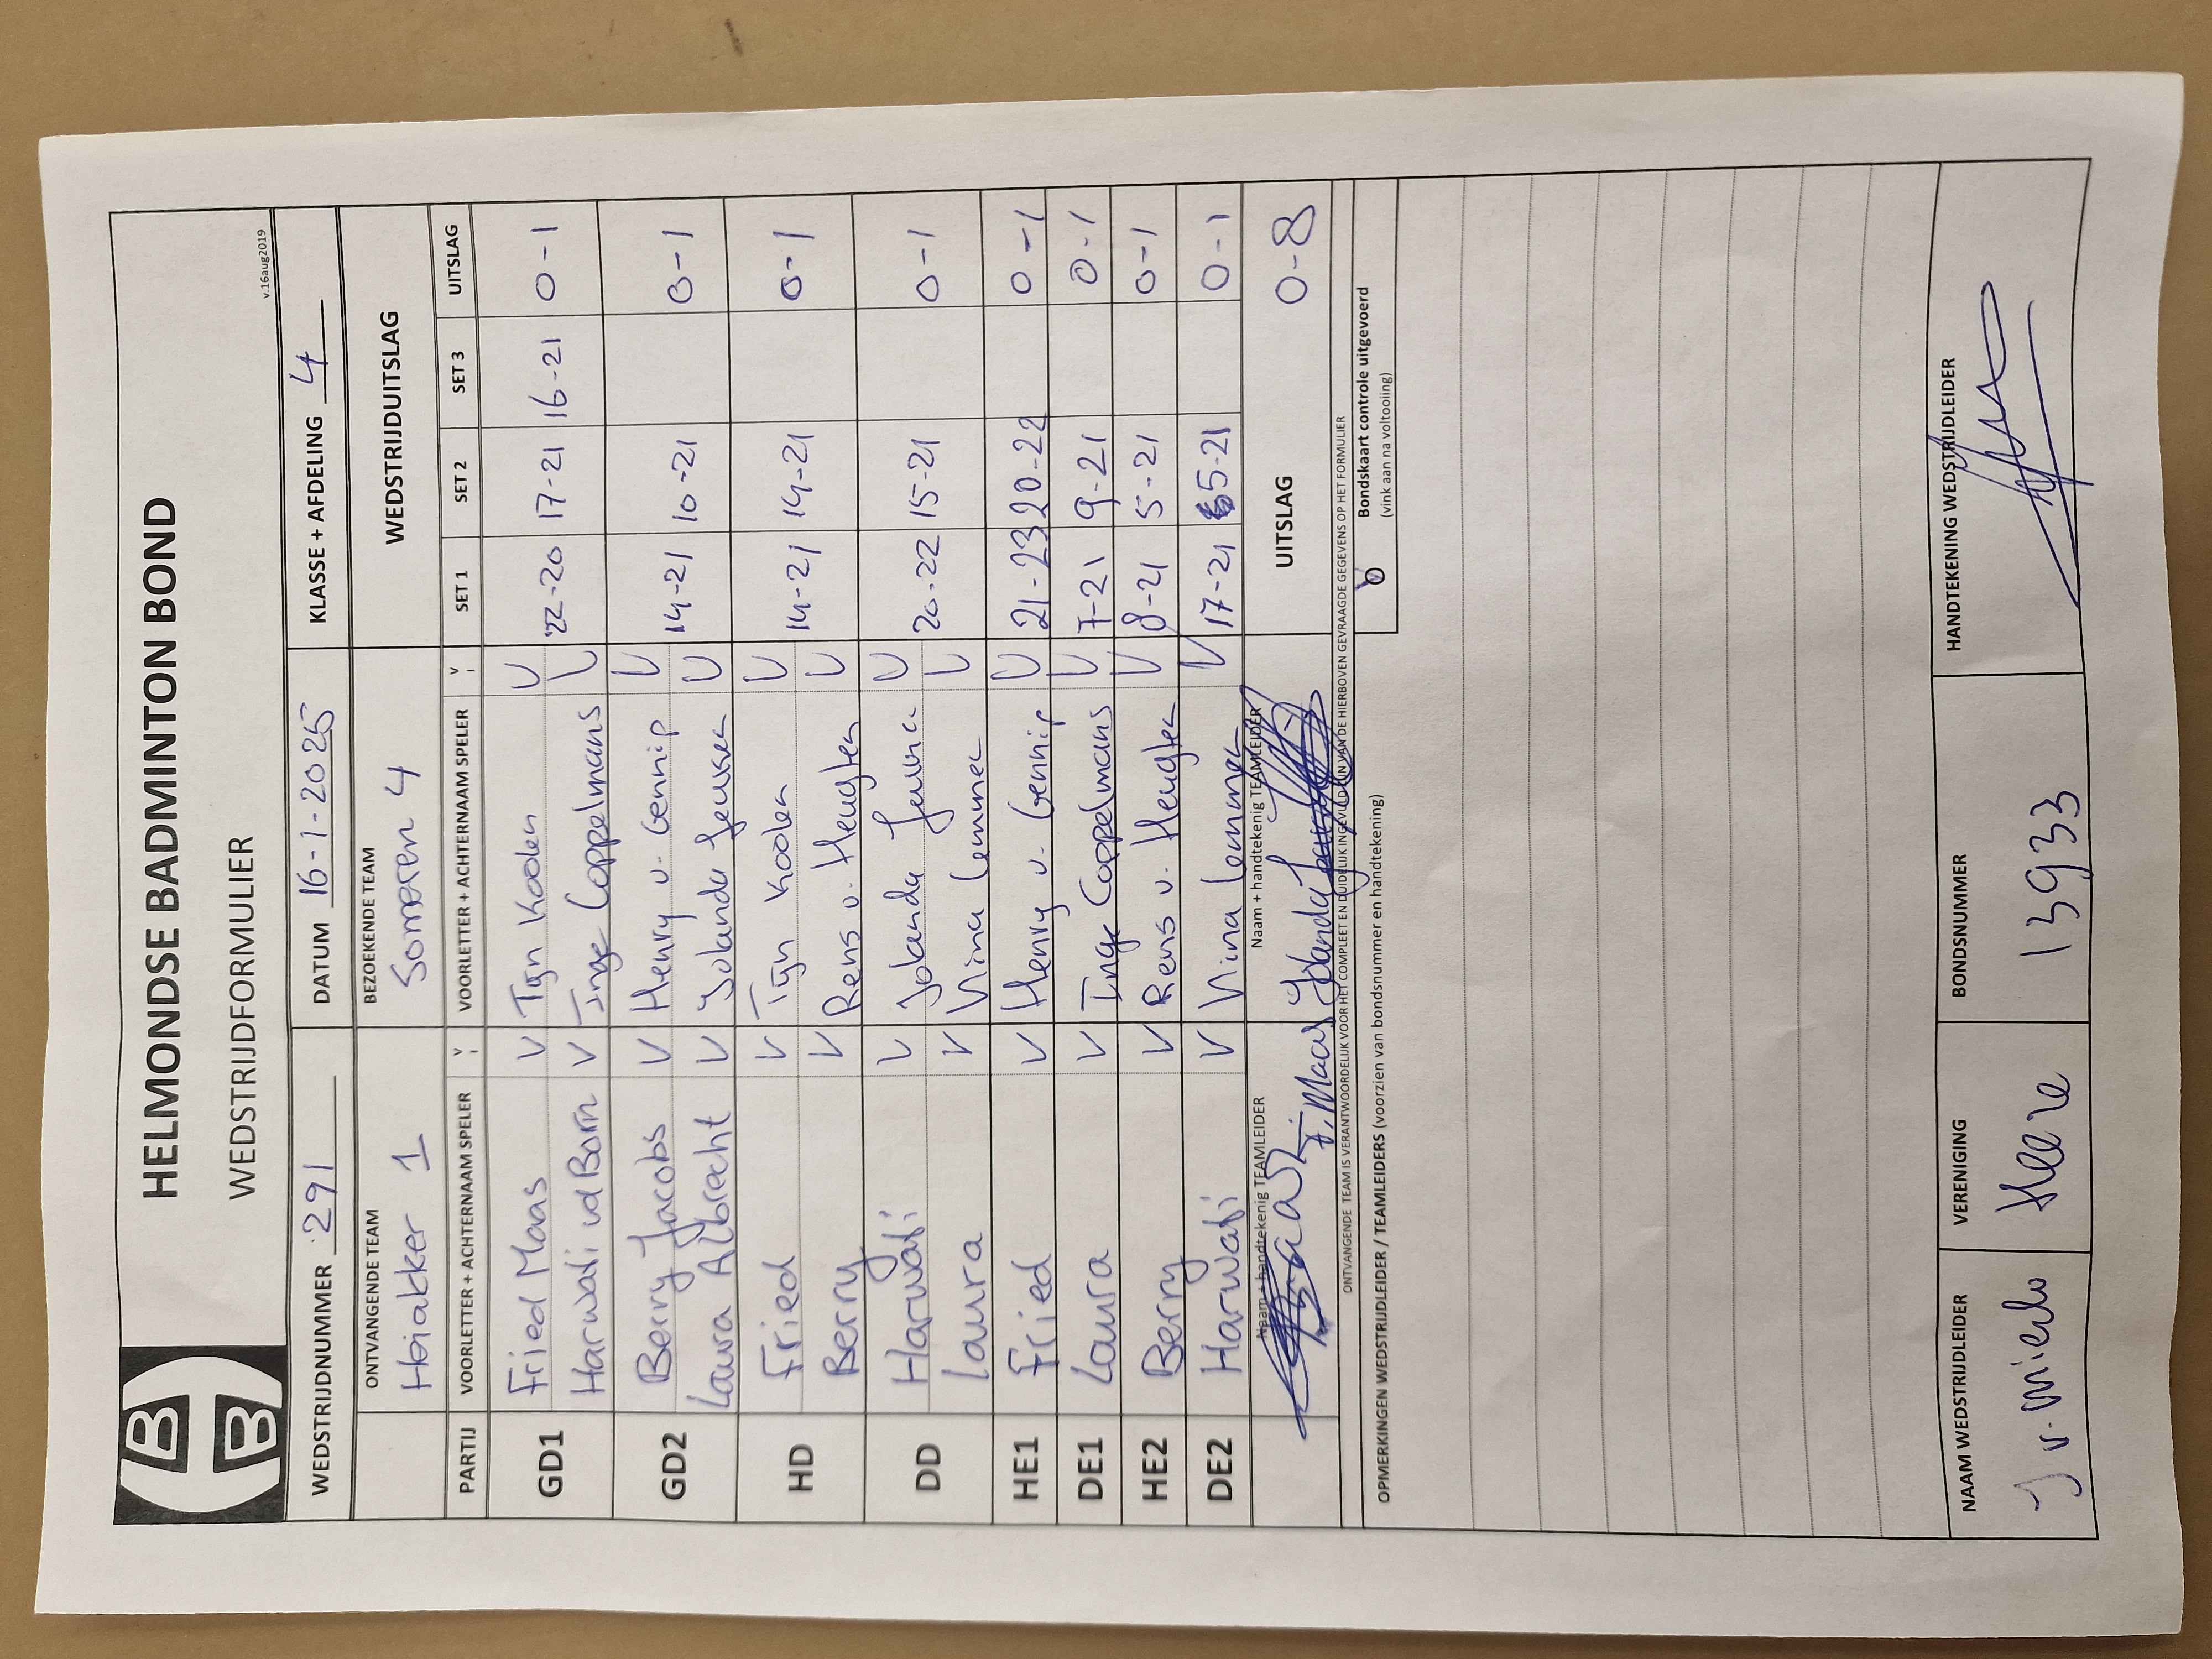 HELMONDSE BADMINTON BOND
WEDSTRIJDFORMULIER
v.16aug2019
WEDSTRIJDNUMMER 291 DATUM 16-1-2025 KLASSE + AFDELING 4
ONTVANGENDE TEAM BEZOEKENDE TEAM WEDSTRIJDUITSLAG
1 Someren 4
PARTIJ VOORLETTER + ACHTERNAAM SPELER V VOORLETTER + ACHTERNAAM SPELER V SET 1 SET 2 SET 3 UITSLAG
GD1 Fried Maas V Tijn Koolen V 22-20 17-21 16-21 0-1
Harwati vd Born V Inge Coppelmans V
GD2 Berry Jacobs V Henry v. Gennip V 14-21 10-21 0-1
Laura Albrecht V Jolanda V
HD Fried V Tijn Koolen V 14-21 14-21 0-1
Berry V Rens v. Heugten V
DD Harwati V Jolanda V 20-22 15-21 0-1
Laura V Nina Lemmen V
HE1 Fried V Henry v. Gennip V 21-23 20-22 0-1
DE1 Laura V Inge Coppelmans V 7-21 9-21 0-1
HE2 Berry V Rens v. Heugten V 8-21 5-21 0-1
DE2 Harwati V Nina Lemmen V 17-21 5-21 0-1
Naam + handtekenig TEAMLEIDER Naam + handtekenig TEAMLEIDER UITSLAG 0-8
F. Maas Jolanda
ONTVANGENDE TEAM IS VERANTWOORDELIJK VOOR HET COMPLEET EN DUIDELIJK INGEVULD ZIJN VAN DE HIERBOVEN GEVRAAGDE GEGEVENS OP HET FORMULIER
OPMERKINGEN WEDSTRIJDLEIDER / TEAMLEIDERS (voorzien van bondsnummer en handtekening)
Bondskaart controle uitgevoerd
(vink aan na voltooiing)
NAAM WEDSTRIJDLEIDER VERENIGING BONDSNUMMER HANDTEKENING WEDSTRIJDLEIDER
13933